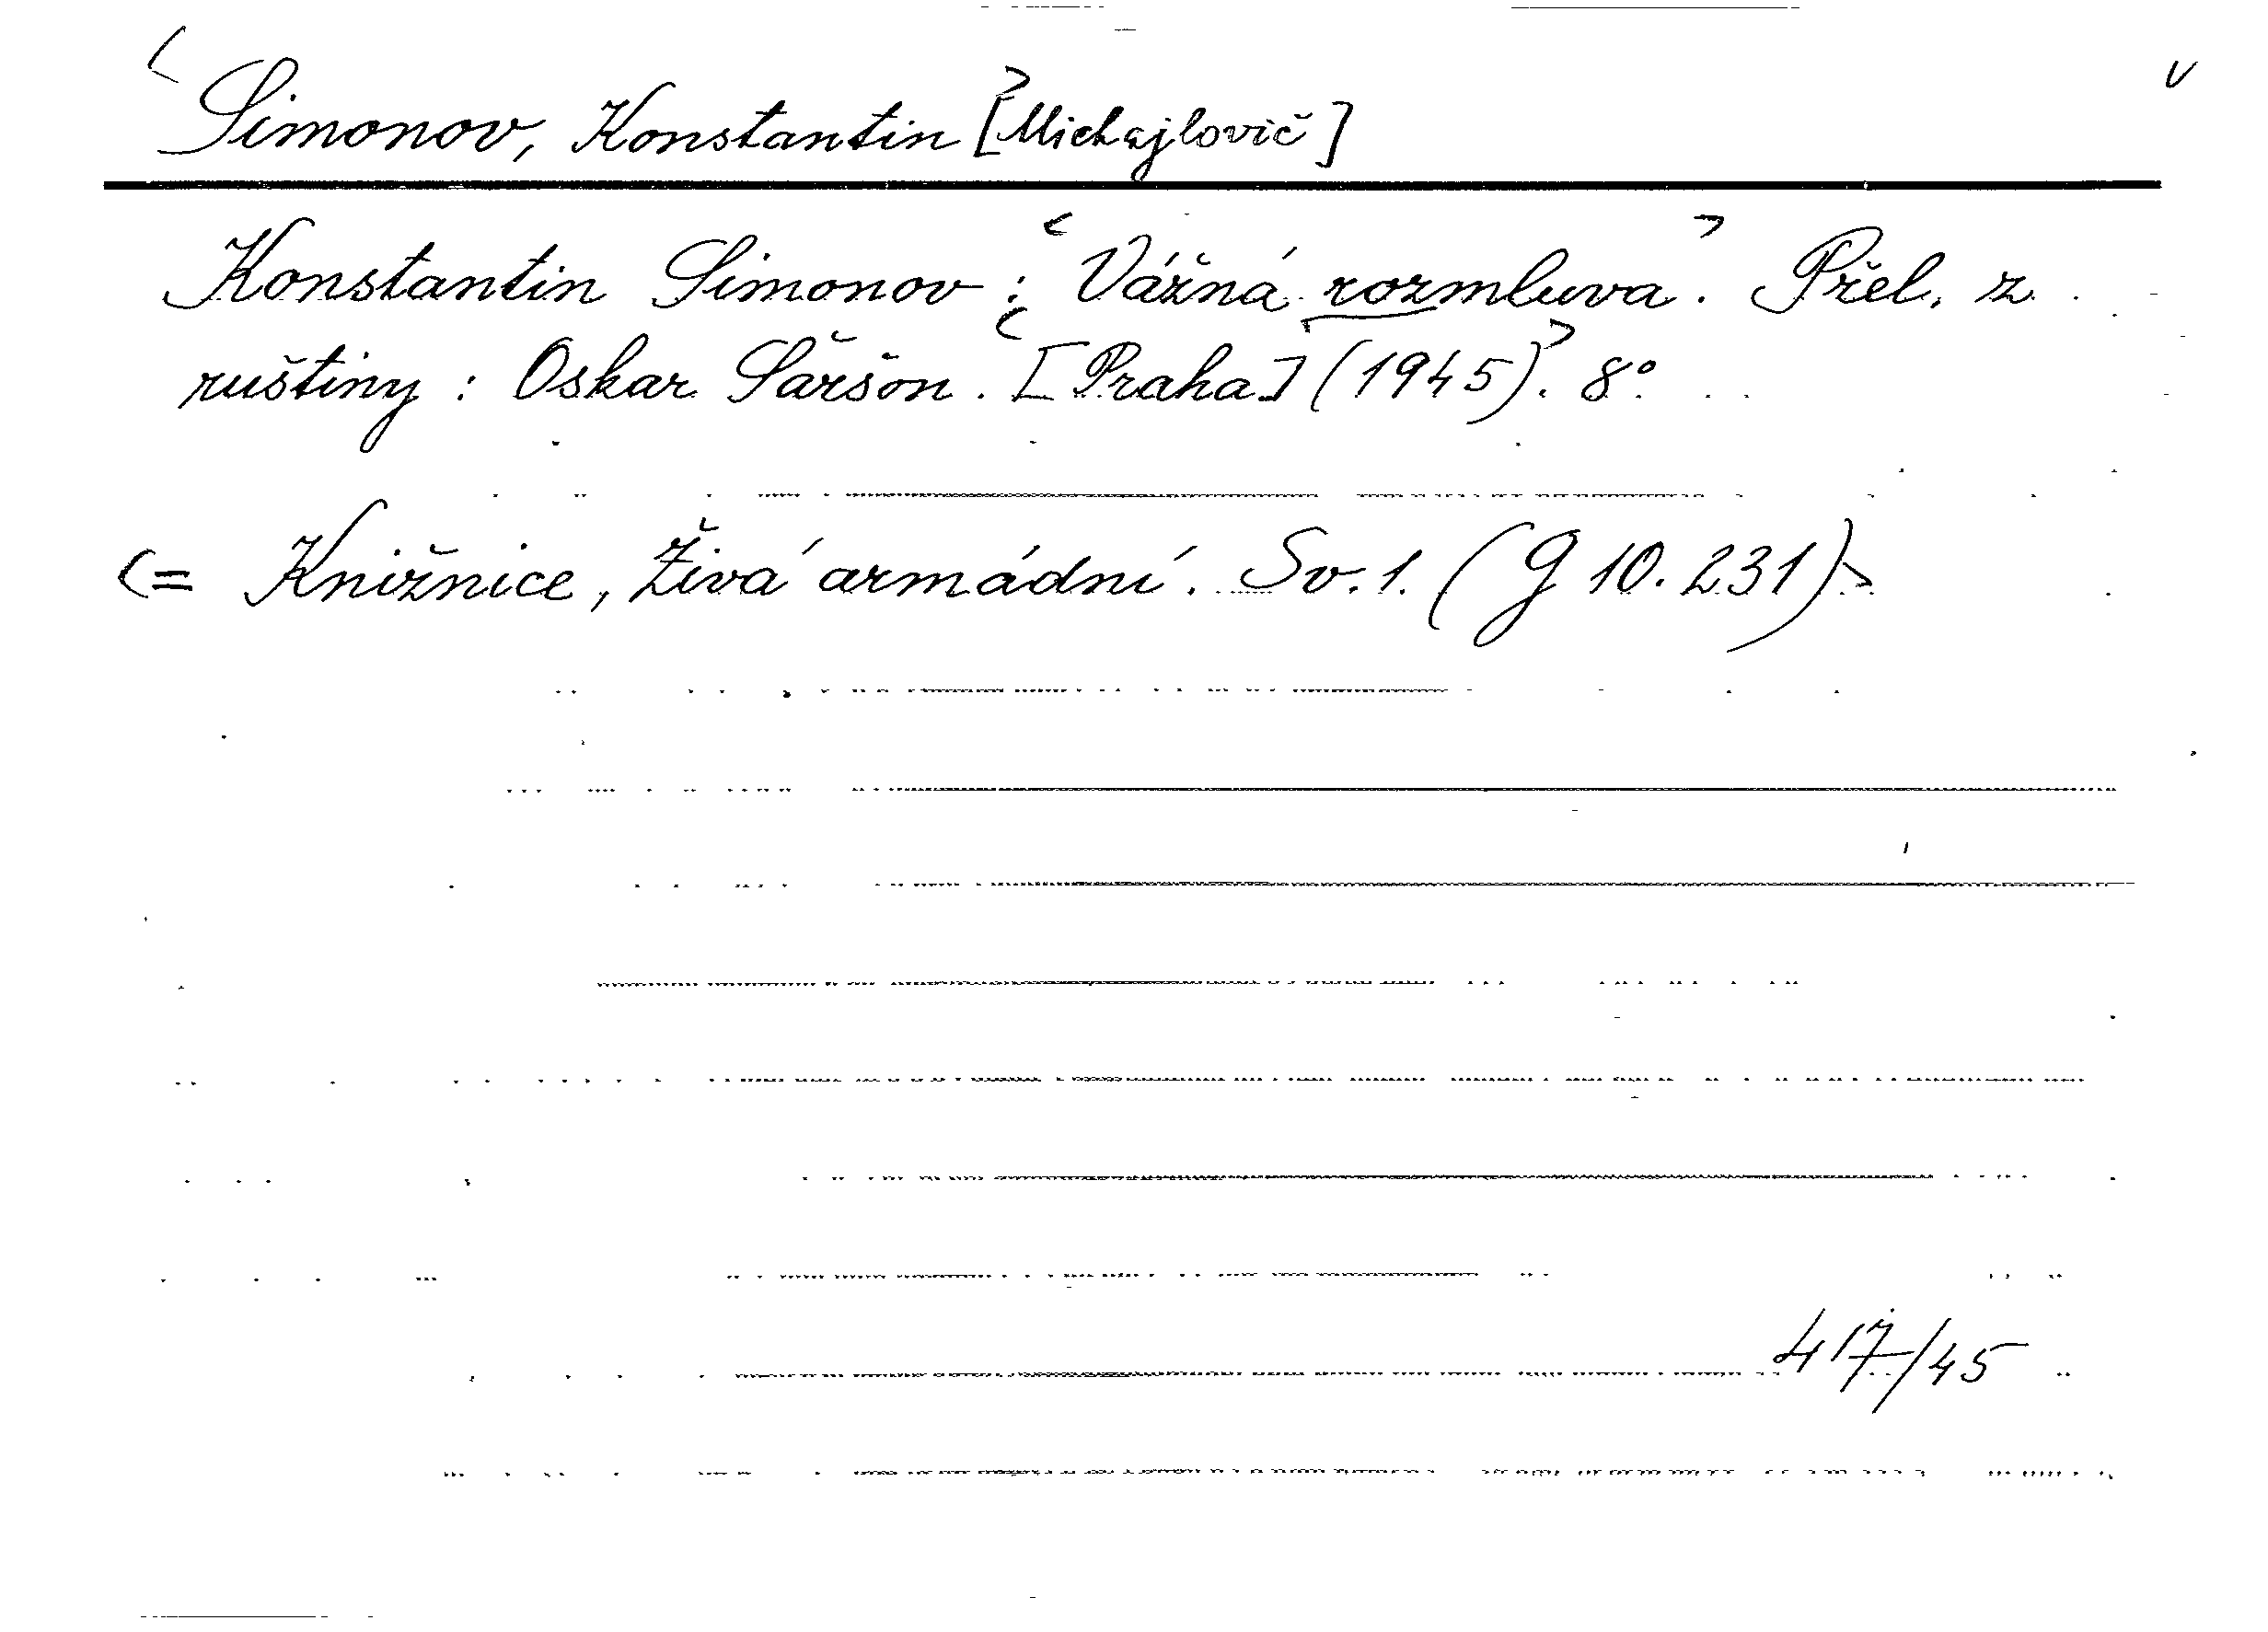 Simonov, Konstantin [Michajlovič]
Konstantin Simonov: Vážná rozmluva. Přel. z
ruštiny: Oskar Šaršon. [Praha] (1945). 8°
(= Knižnice, Živá armádní. Sv. 1. (G 10.231)>
417/45